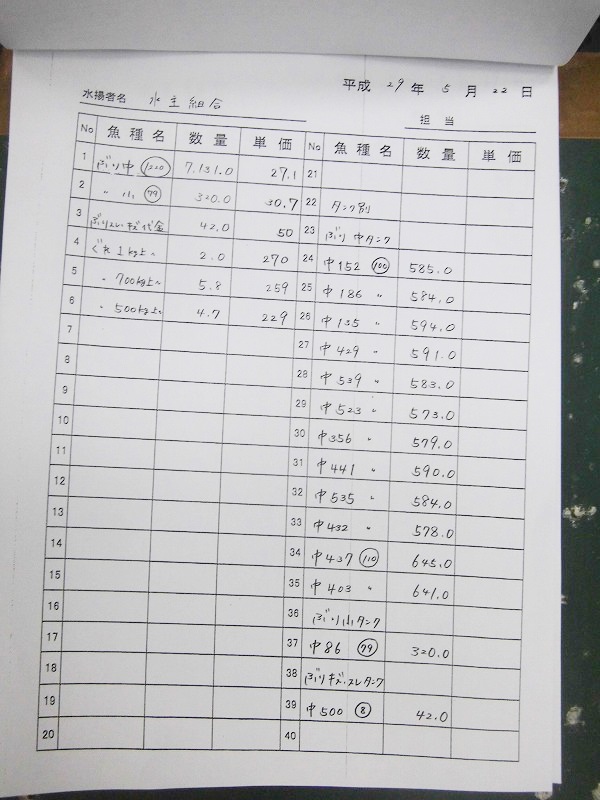 平成 29 年 5 月 22 日
水揚者名 水主組合
担当
No 魚種名 数量 単価 No 魚種名 数量 単価
1 ぶり中 1220 7.131.0 27.1 21
2 〃 小 79 320.0 30.7 22 タンク別
3 ぶりスレ・キズ代金 42.0 50 23 ぶり中タンク
4 ぐれ1kg上〜 2.0 270 24 中152 100 585.0
5 〃 700kg上〜 5.8 259 25 中186 〃 584.0
6 〃 500kg上〜 4.7 229 26 中135 〃 594.0
7 27 中429 〃 591.0
8 28 中539 〃 583.0
9 29 中523 〃 573.0
10 30 中356 〃 579.0
11 31 中441 〃 590.0
12 32 中535 〃 584.0
13 33 中432 〃 578.0
14 34 中437 110 645.0
15 35 中403 〃 641.0
16 36 ぶり小タンク
17 37 中86 79 320.0
18 38 ぶりキズ・スレタンク
19 39 中500 8 42.0
20 40